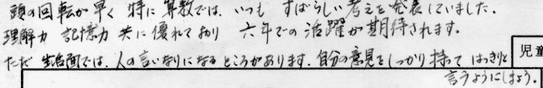 頭の回転が早く 特に算数では、いつも すばらしい考えを発表していました.
理解力 記憶力 共に優れており 六年での活躍が期待されます。
ただ 生活面では、人の言いなりになるところがあります. 自分の意見をしっかり持って はっきりと
言うようにしましょう.
児童